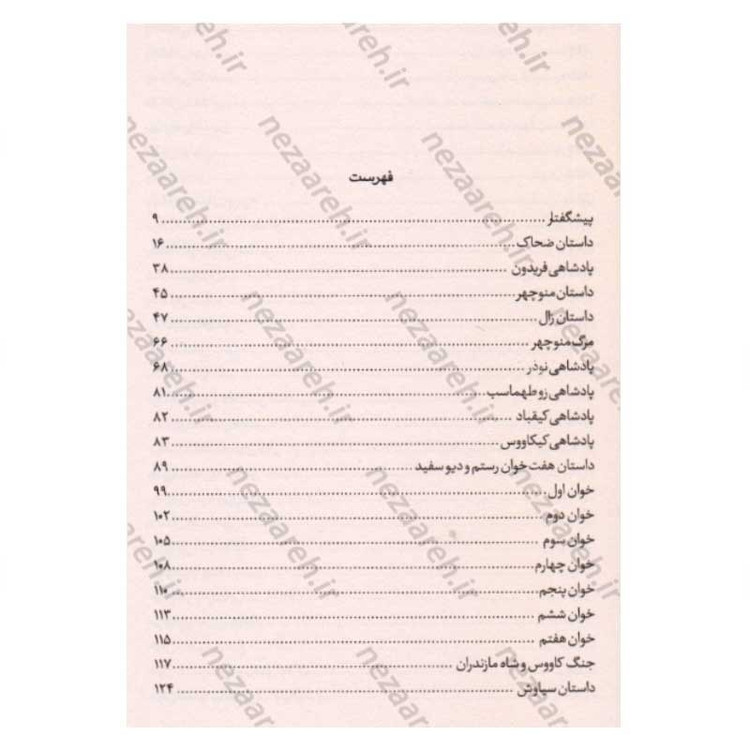 فهرست
پیشگفتار ........ ۹
داستان ضحاک ........ ۱۶
پادشاهی فریدون ........ ۳۸
داستان منوچهر ........ ۴۵
داستان زال ........ ۴۷
مرگ منوچهر ........ ۶۶
پادشاهی نوذر ........ ۶۸
پادشاهی زو طهماسب ........ ۸۱
پادشاهی کیقباد ........ ۸۲
پادشاهی کیکاووس ........ ۸۳
داستان هفت خوان رستم و دیو سفید ........ ۸۹
خوان اول ........ ۹۹
خوان دوم ........ ۱۰۲
خوان سوم ........ ۱۰۵
خوان چهارم ........ ۱۰۸
خوان پنجم ........ ۱۱۰
خوان ششم ........ ۱۱۳
خوان هفتم ........ ۱۱۵
جنگ کاووس و شاه مازندران ........ ۱۱۷
داستان سیاوش ........ ۱۲۴
nezaareh.ir